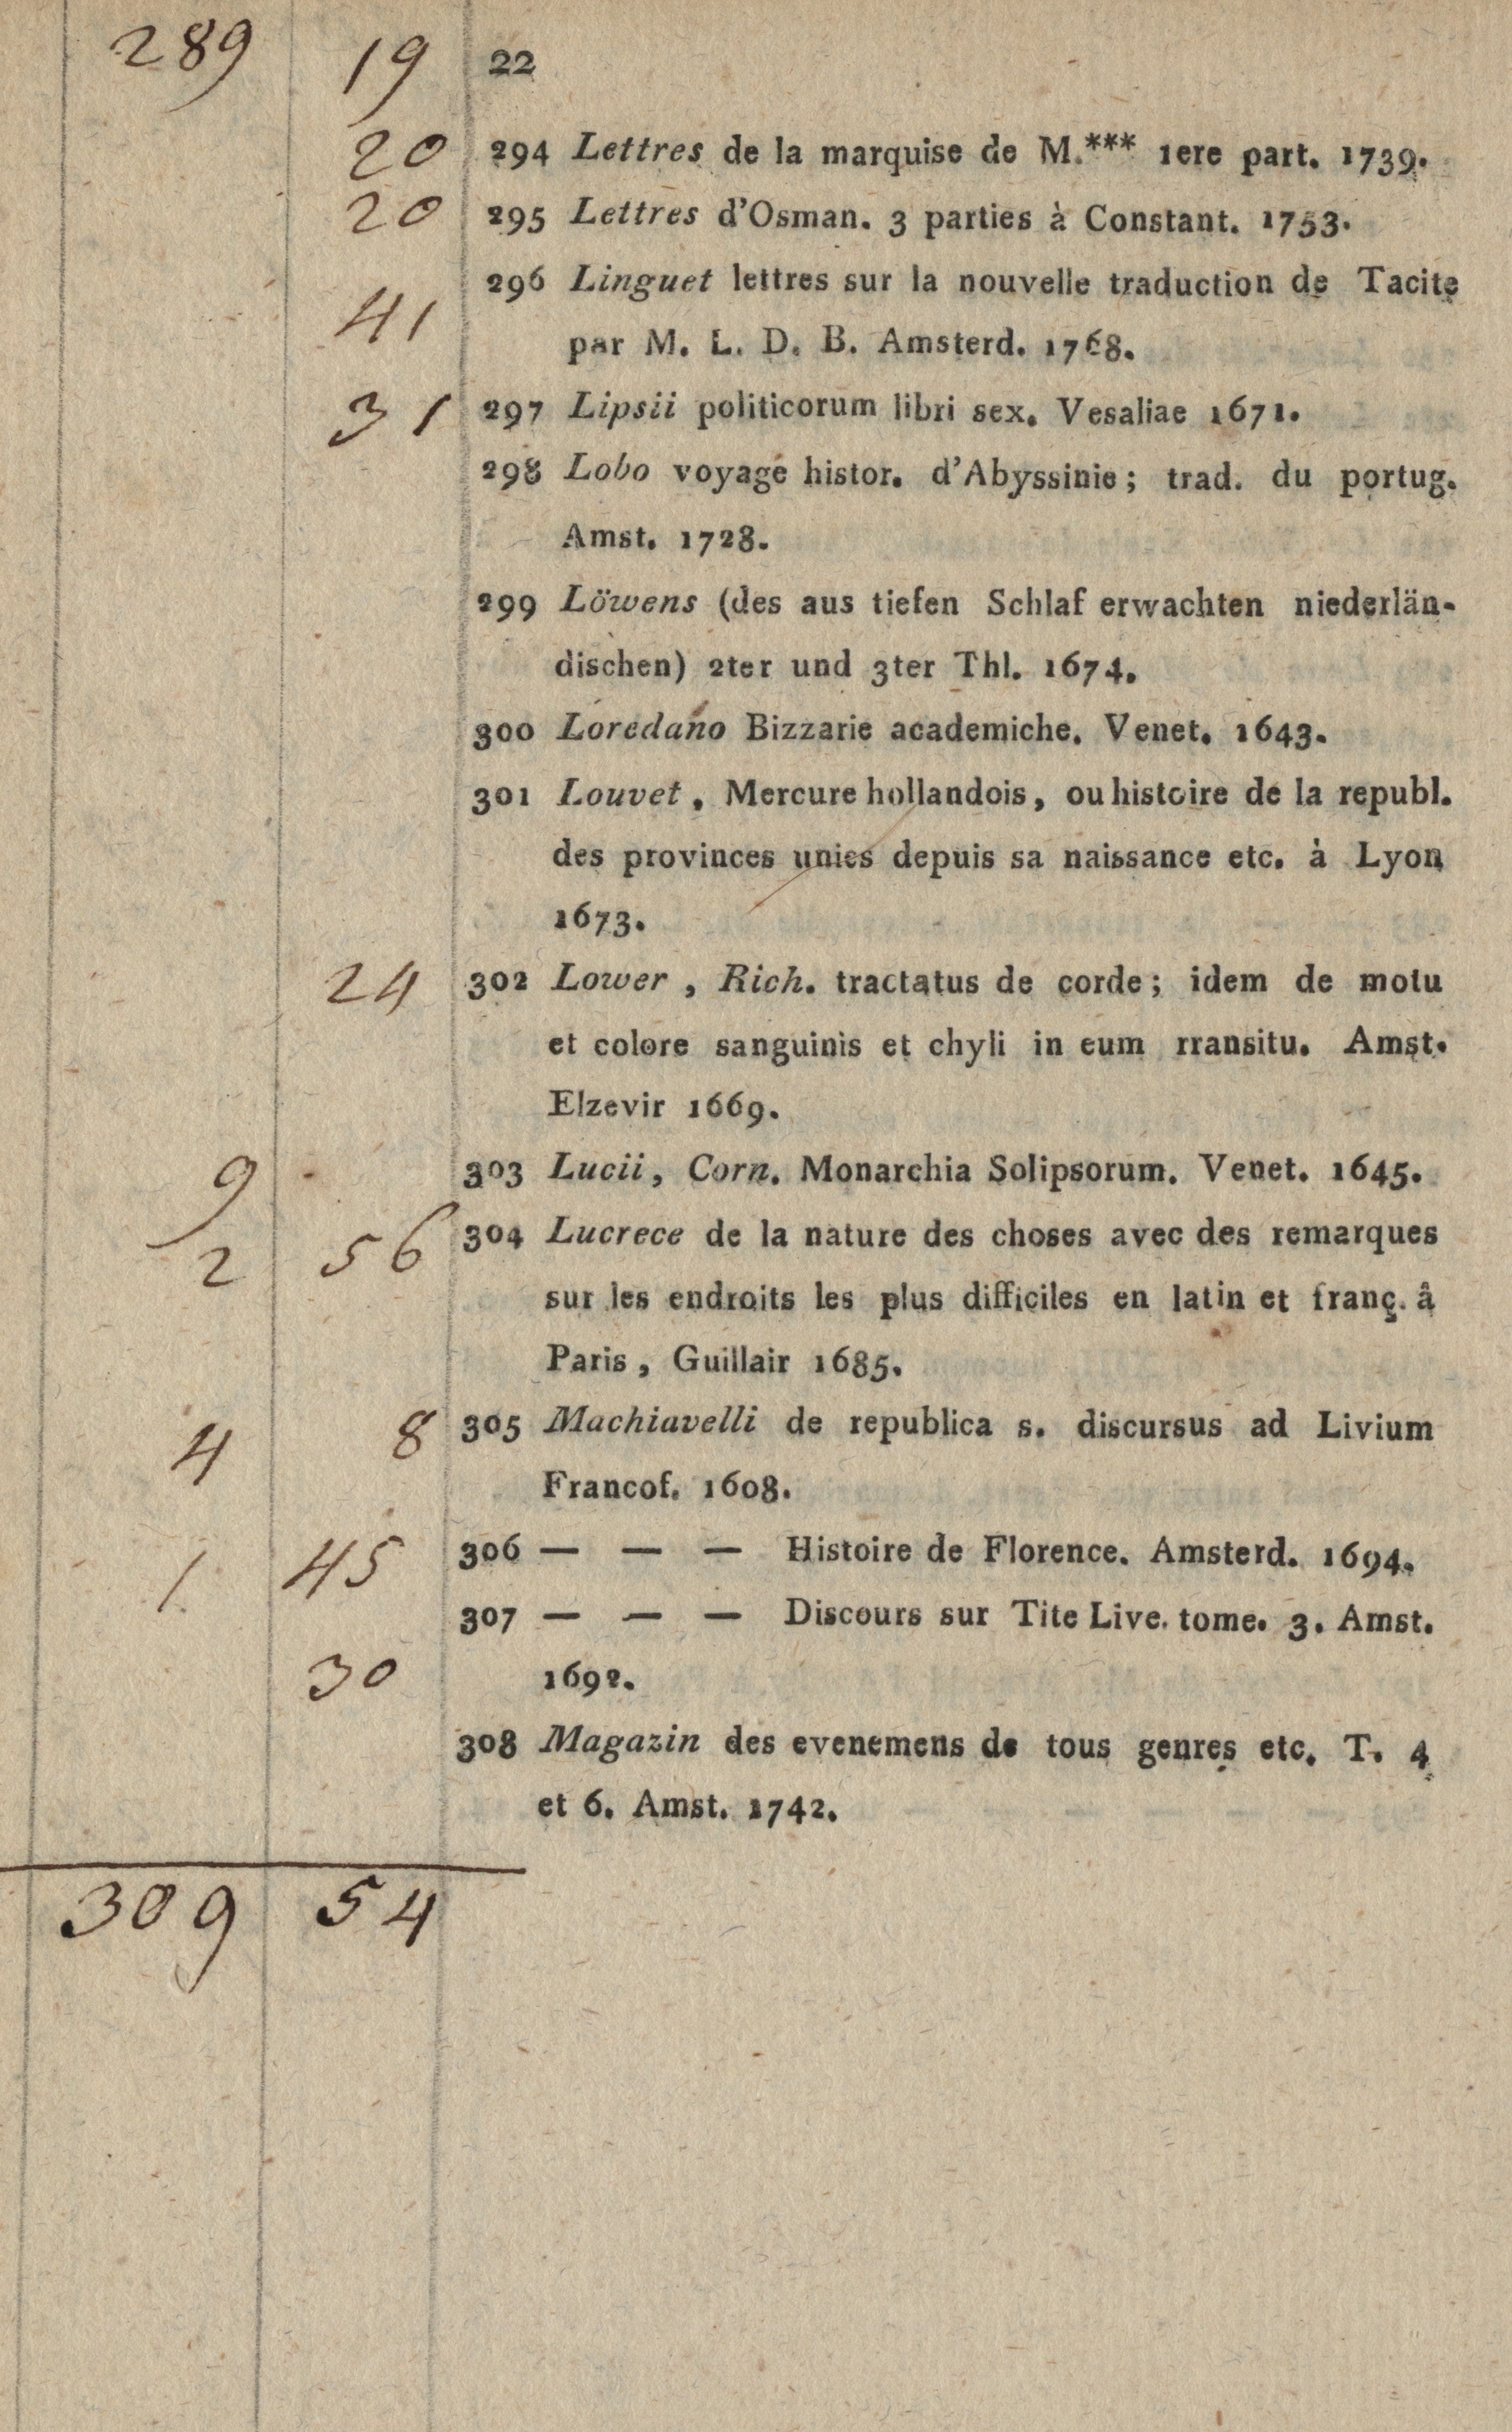 289 19 22
20 294 Lettres de la marquise de M.*** 1ere part. 1739.
20 295 Lettres d'Osman. 3 parties à Constant. 1753.
296 Linguet lettres sur la nouvelle traduction de Tacite
41 par M. L. D. B. Amsterd. 1768.
31 297 Lipsii politicorum libri sex. Vesaliae 1671.
298 Lobo voyage histor. d'Abyssinie; trad. du portug.
Amst. 1728.
299 Löwens (des aus tiefen Schlaf erwachten niederlän-
dischen) 2ter und 3ter Thl. 1674.
300 Loredano Bizzarie academiche. Venet. 1643.
301 Louvet, Mercure hollandois, ou histoire de la republ.
des provinces unies depuis sa naissance etc. à Lyon
1673.
24 302 Lower, Rich. tractatus de corde; idem de motu
et colore sanguinis et chyli in eum rransitu. Amst.
Elzevir 1669.
9 303 Lucii, Corn. Monarchia Solipsorum. Venet. 1645.
2 56 304 Lucrece de la nature des choses avec des remarques
sur les endroits les plus difficiles en latin et franç. â
Paris, Guillair 1685.
4 8 305 Machiavelli de republica s. discursus ad Livium
Francof. 1608.
1 45 306 — — — Histoire de Florence. Amsterd. 1694.
307 — — — Discours sur Tite Live. tome. 3. Amst.
30 1692.
308 Magazin des evenemens de tous genres etc. T. 4
et 6. Amst. 1742.
309 54